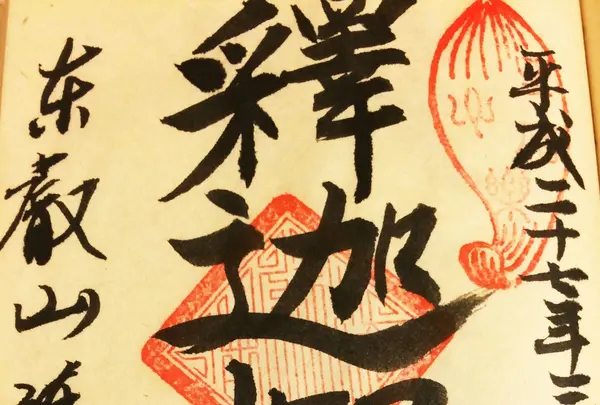 平成二十七年
釋迦
東叡山